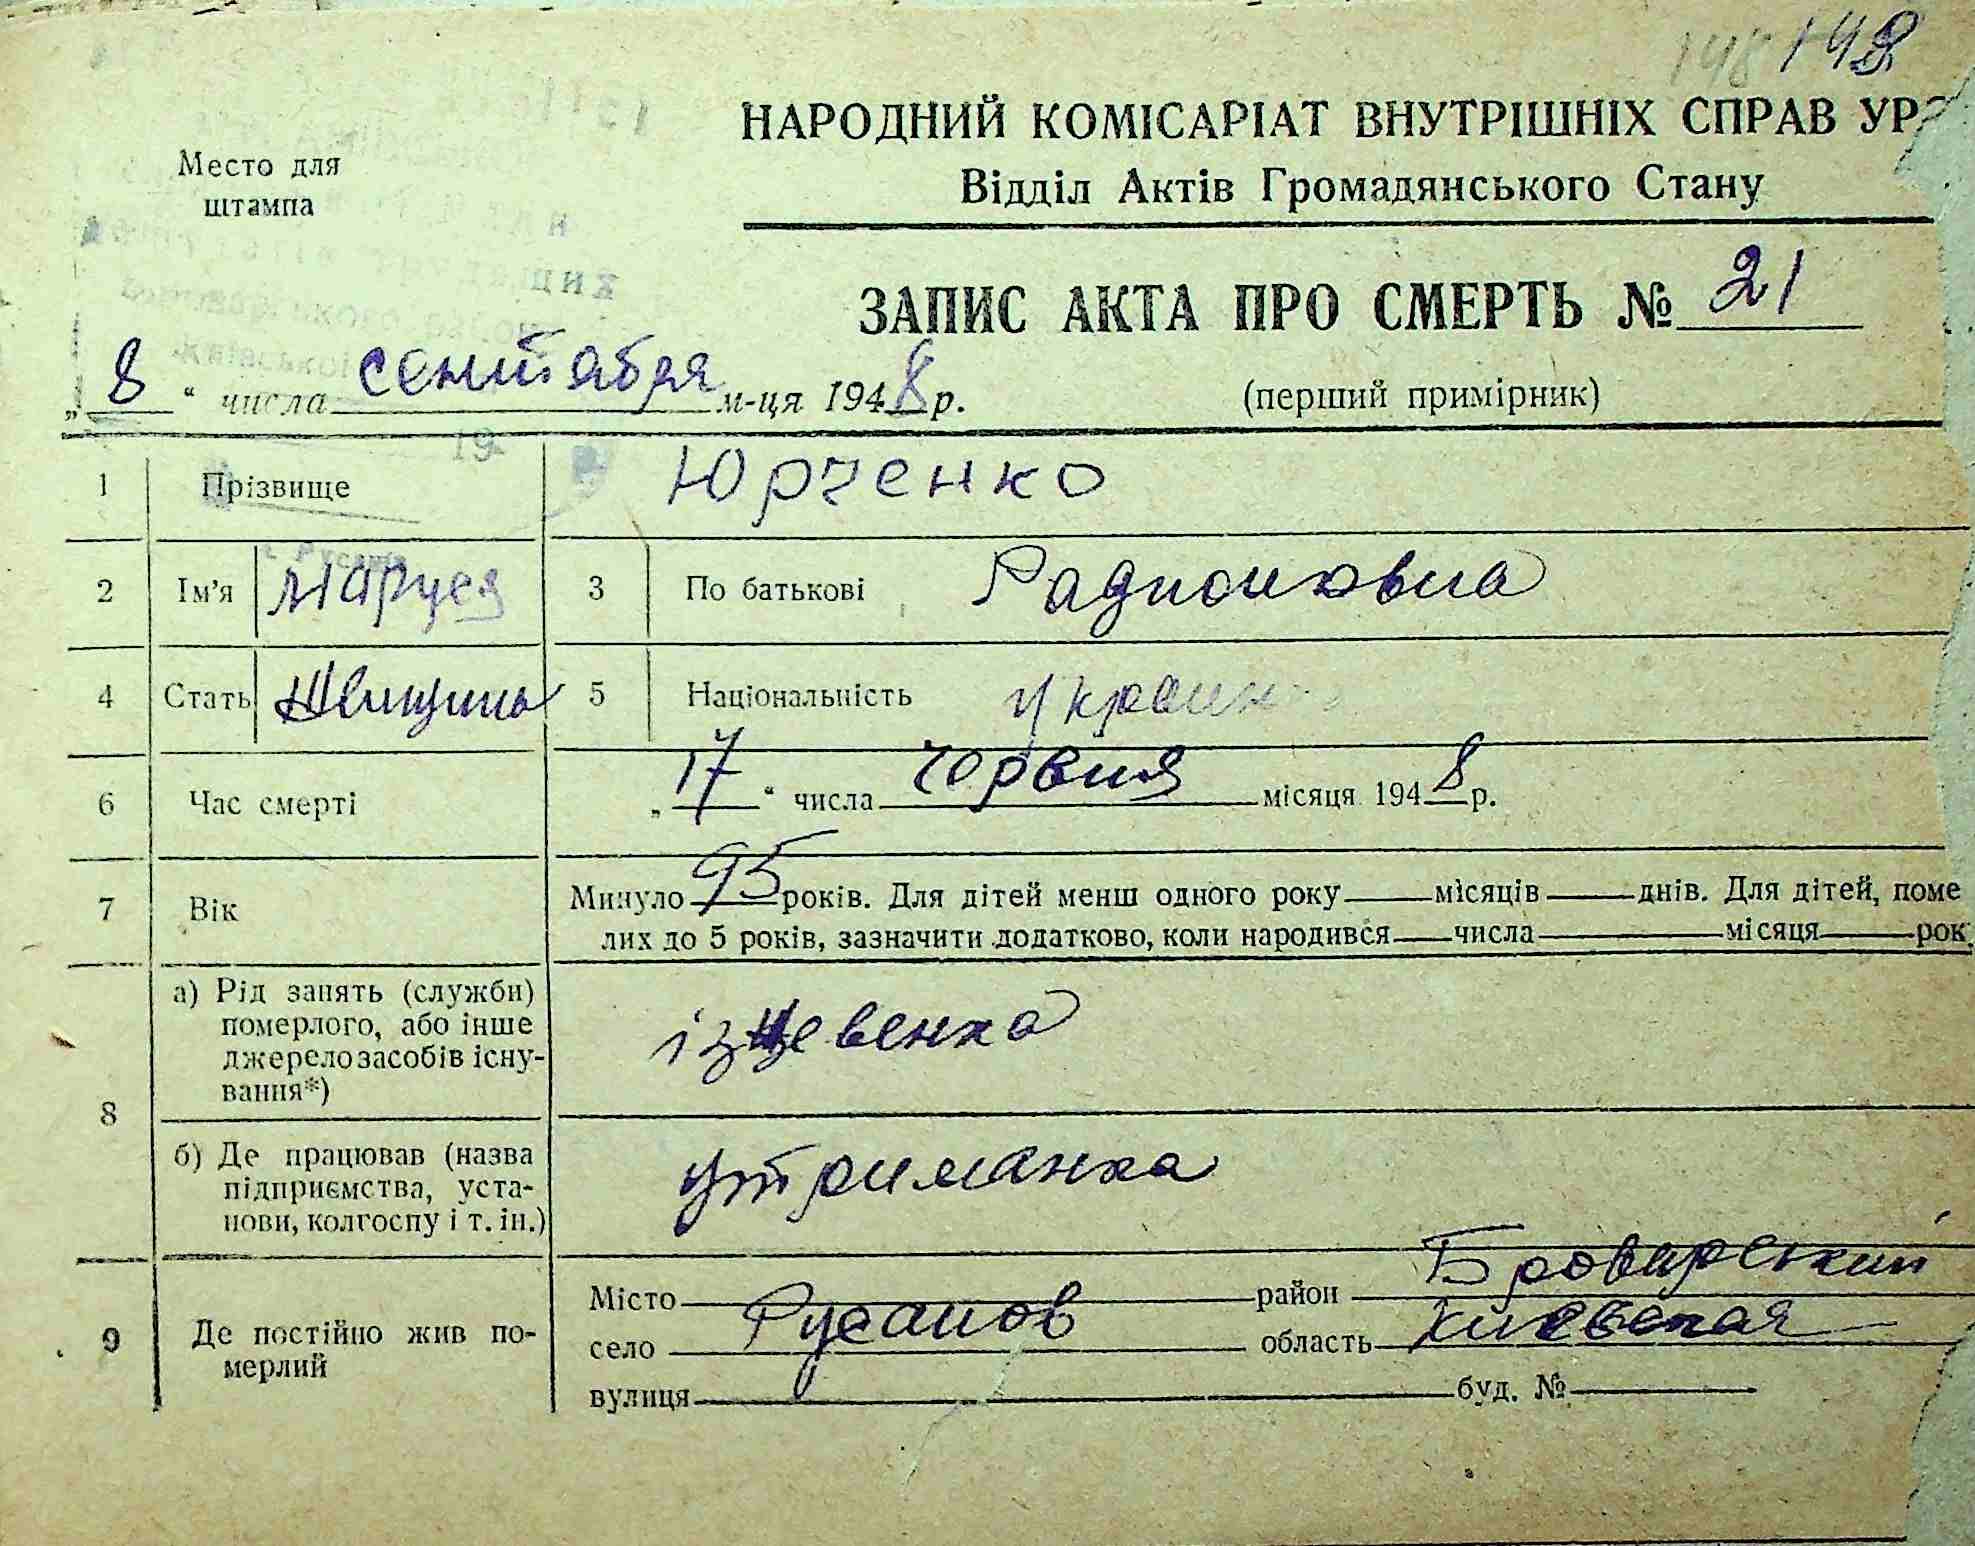 148 148
НАРОДНИЙ КОМІСАРІАТ ВНУТРІШНІХ СПРАВ УР
Відділ Актів Громадянського Стану
Место для
штампа
ЗАПИС АКТА ПРО СМЕРТЬ № 21
„ 8 “ числа сентября м-ця 1948 р.
(перший примірник)
1 Прізвище Юрченко
2 Ім'я Маруся 3 По батькові Радионовна
4 Стать 5 Національність Украин
6 Час смерті „ 17 “ числа червня місяця 1948 р.
7 Вік Минуло 95 років. Для дітей менш одного року місяців днів. Для дітей, поме
лих до 5 років, зазначити додатково, коли народився числа місяця рок
8 а) Рід занять (служби)
померлого, або інше
джерело засобів існу-
вання*)
б) Де працював (назва
підприємства, уста-
нови, колгоспу і т. ін.)
утриманка
9 Де постійно жив по-
мерлий
Місто район Броварський
село Русанов область Киевская
вулиця буд. №